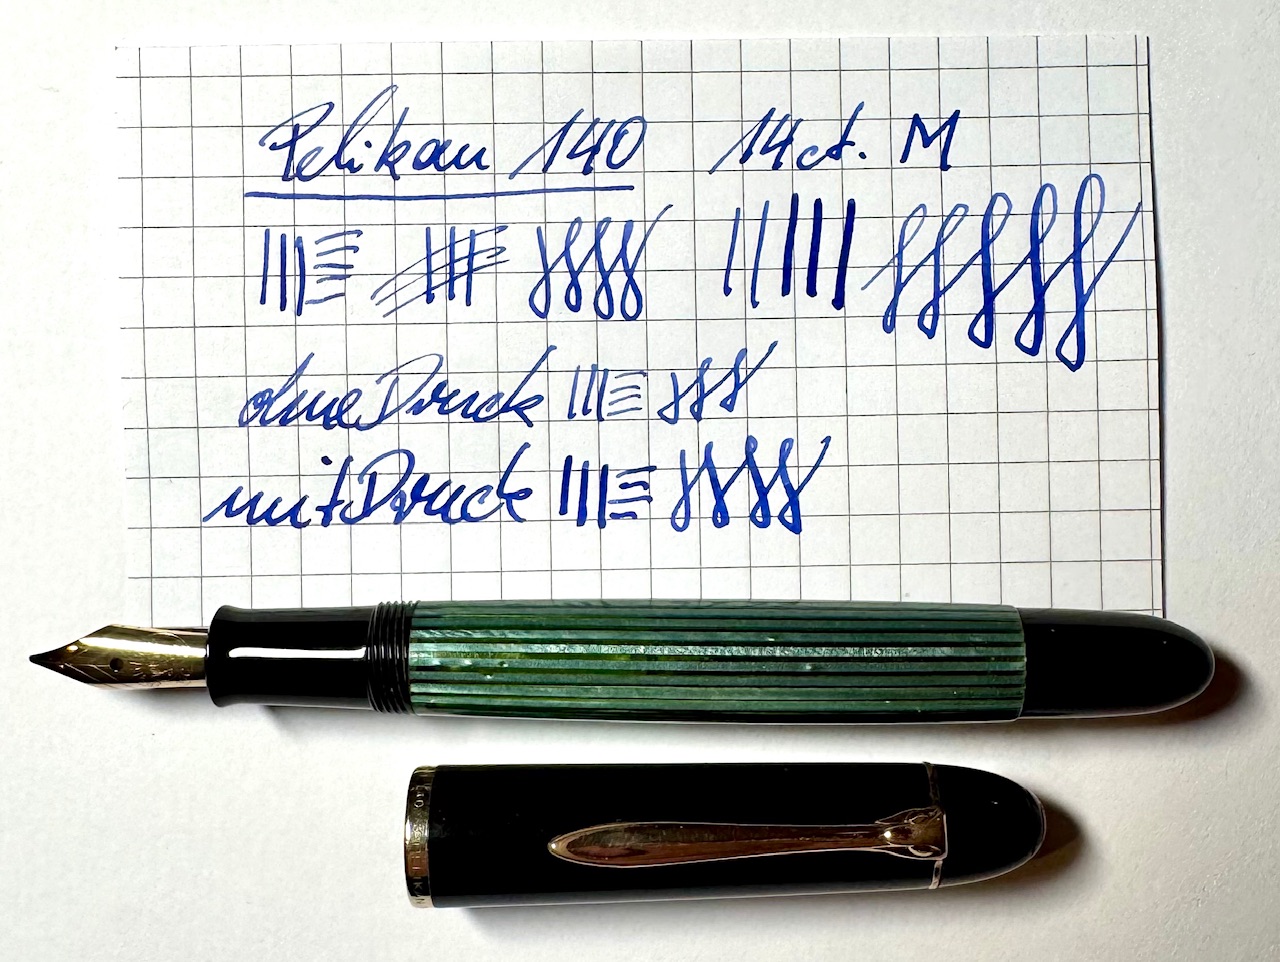 Pelikan 140 14ct. M
ohne Druck
mit Druck